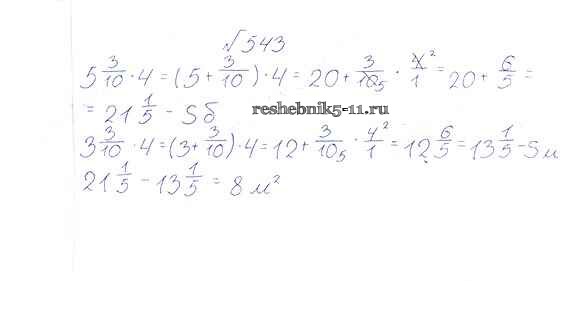 √543
5 3/10 · 4 = (5 + 3/10) · 4 = 20 + 3/10 5 · 4/1 2 = 20 + 6/5 =
= 21 1/5 - Sб
reshebnik5-11.ru
3 3/10 · 4 = (3 + 3/10) · 4 = 12 + 3/10 5 · 4/1 2 = 12 6/5 = 13 1/5 - Sм
21 1/5 - 13 1/5 = 8 м²